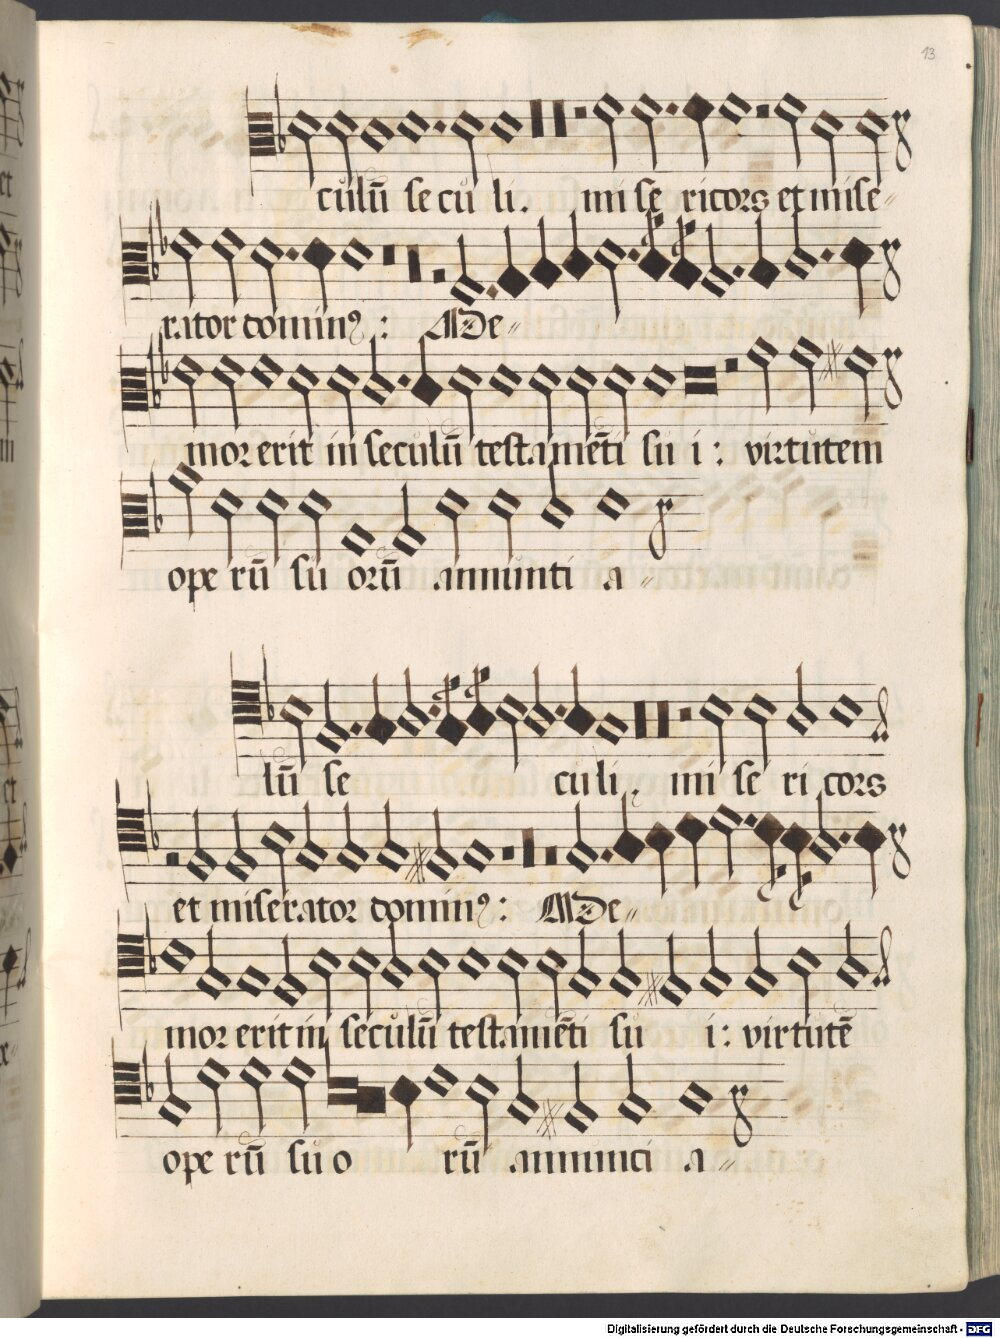 13
culū se cu li. mi se ricors et mise
rator domin⁹: Me
mor erit in seculū testamēti su i: virtutem
ope rū su orū annunti a
lū se cu li. mi se ri cors
et miserator domin⁹: Me
mor erit in seculū testamēti su i: virtutē
ope rū su o rū annunci a
Digitalisierung gefördert durch die Deutsche Forschungsgemeinschaft - DFG